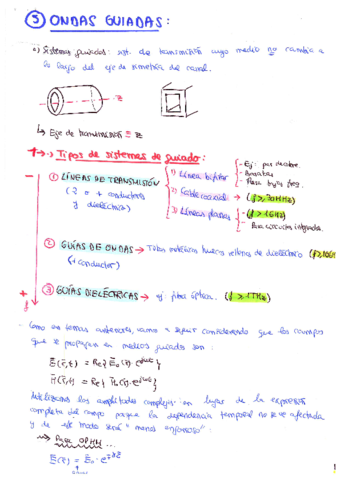 ③ ONDAS GUIADAS:
a) Sistemas guiados: sist. de transmisión cuyo medio no cambia a
lo largo del eje de simetría del canal.
z
↳ Eje de transmisión ≡ z
Tipos de sistemas de guiado:
① LÍNEAS DE TRANSMISIÓN
(2 o + conductores
y dieléctrico)
1) Línea bifilar
- Ej: par
- Baratas
- Para bajas freq.
2) Cable coaxial → (f > 30MHz)
3) Líneas planares → (f > 1GHz)
- Para circuitos integrados.
② GUÍAS DE ONDAS → Tubos metálicos huecos rellenos de dieléctrico (f ≥ 10GHz
(1 conductor)
③ GUÍAS DIELÉCTRICAS → ej: fibra óptica. (f > 1THz)
f
Como en temas anteriores, vamos a seguir considerando que los campos
que se propagan en medios guiados son:
E(r,t) = Re{E₀(r)·e^jωt}
H(r,t) = Re{H₀(r)·e^jωt}
Utilizamos las amplitudes complejas en lugar de la expresión
completa del campo porque la dependencia temporal no se ve afectada
y de este modo será "menos engorroso":
Para OPHH...
E(r) = E₀·e
1